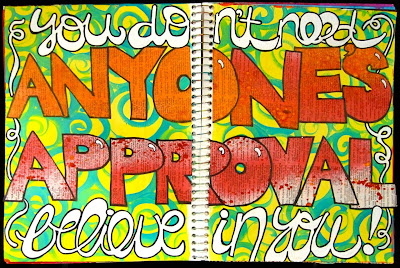 you don't need
ANYONE'S
APPROVAL
believe in you!